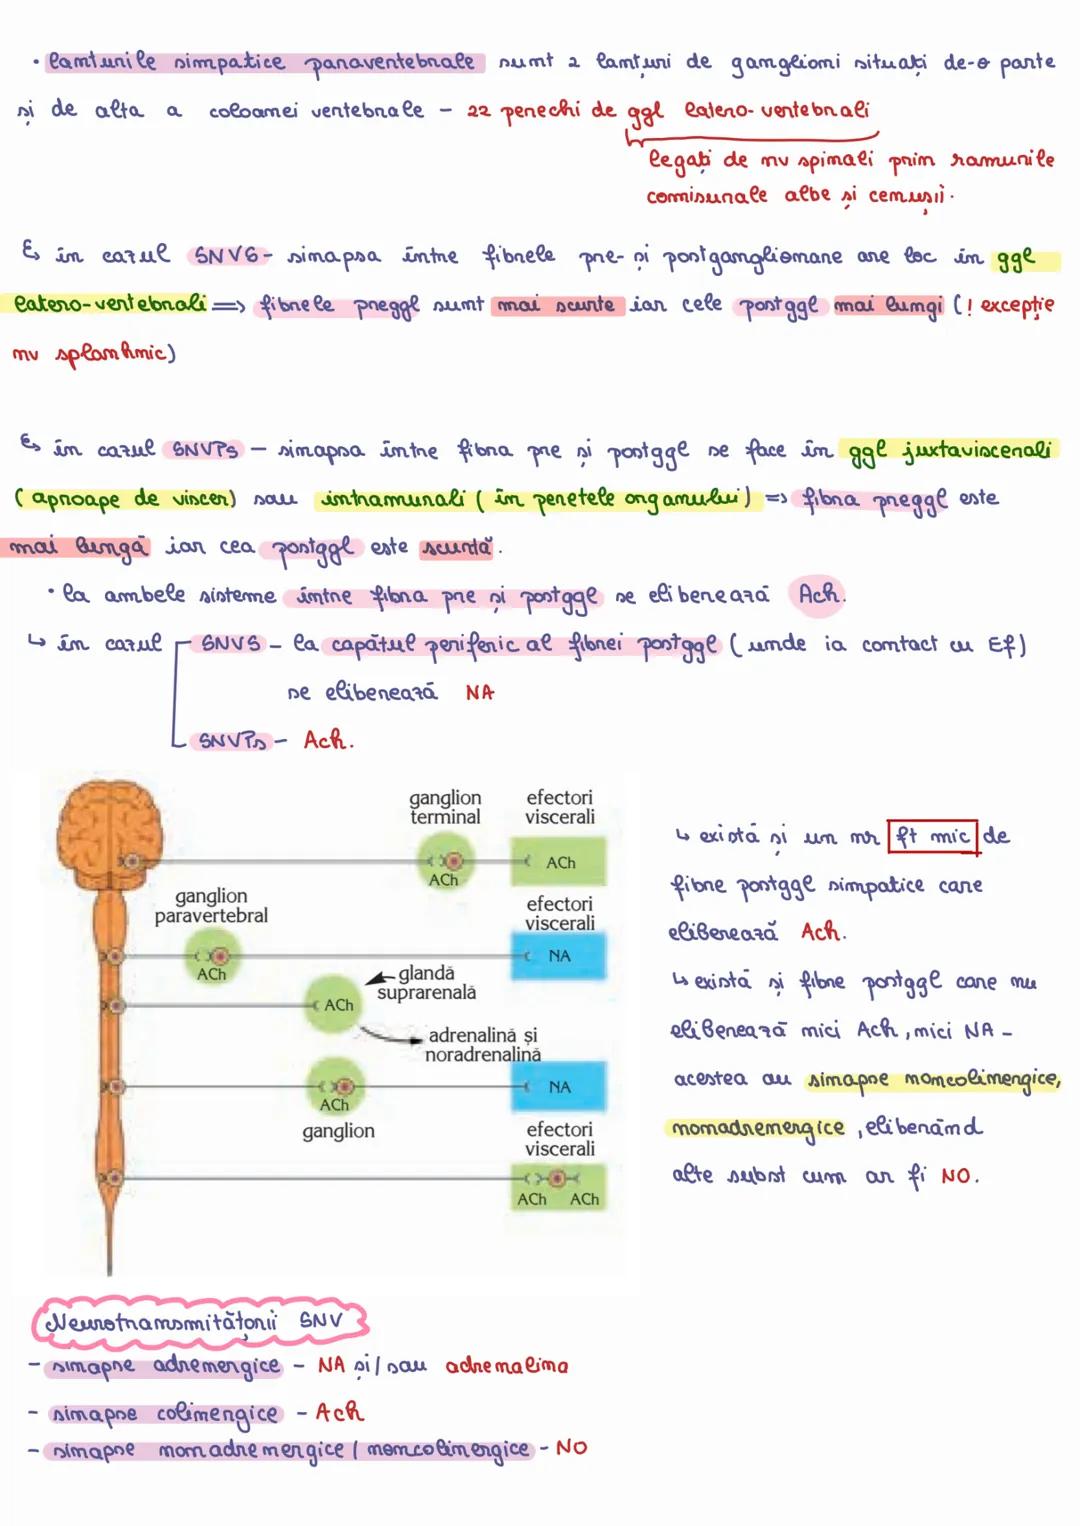 • lanțurile simpatice paravertebrale sunt 2 lanțuri de ganglioni situați de-o parte
și de alta a coloanei vertebrale – 22 perechi de ggl latero-vertebrali
legați de nv spinali prin ramurile
comisurale albe și cenușii.
↳ în cazul SNVS - sinapsa între fibrele pre- și postganglionare are loc în ggl
latero-vertebrali => fibrele preggl sunt mai scurte iar cele postggl mai lungi (! excepție
nv splanhnic)
↳ în cazul SNVPs – sinapsa între fibra pre și postggl se face în ggl juxtaviscerali
(aproape de viscer) sau intramurali (în peretele organului) => fibra preggl este
mai lungă iar cea postggl este scurtă.
• la ambele sisteme între fibra pre și postggl se eliberează Ach.
↳ în cazul SNVS – la capătul periferic al fibrei postggl (unde ia contact cu Ef)
se eliberează NA
SNVPs – Ach.
ganglion
terminal
efectori
viscerali
ACh
ACh
ganglion
paravertebral
efectori
viscerali
ACh
NA
glandă
suprarenală
ACh
adrenalină și
noradrenalină
ACh
NA
ganglion
efectori
viscerali
ACh ACh
↳ există și un nr ft mic de
fibre postggl simpatice care
eliberează Ach.
↳ există și fibre postggl care nu
eliberează nici Ach, nici NA –
acestea au sinapse noncolinergice,
nonadrenergice, eliberând
alte subst cum ar fi NO.
Neurotransmițătorii SNV
- sinapse adrenergice - NA și/sau adrenalina
- sinapse colinergice - Ach
- sinapse nonadrenergice / noncolinergice - NO